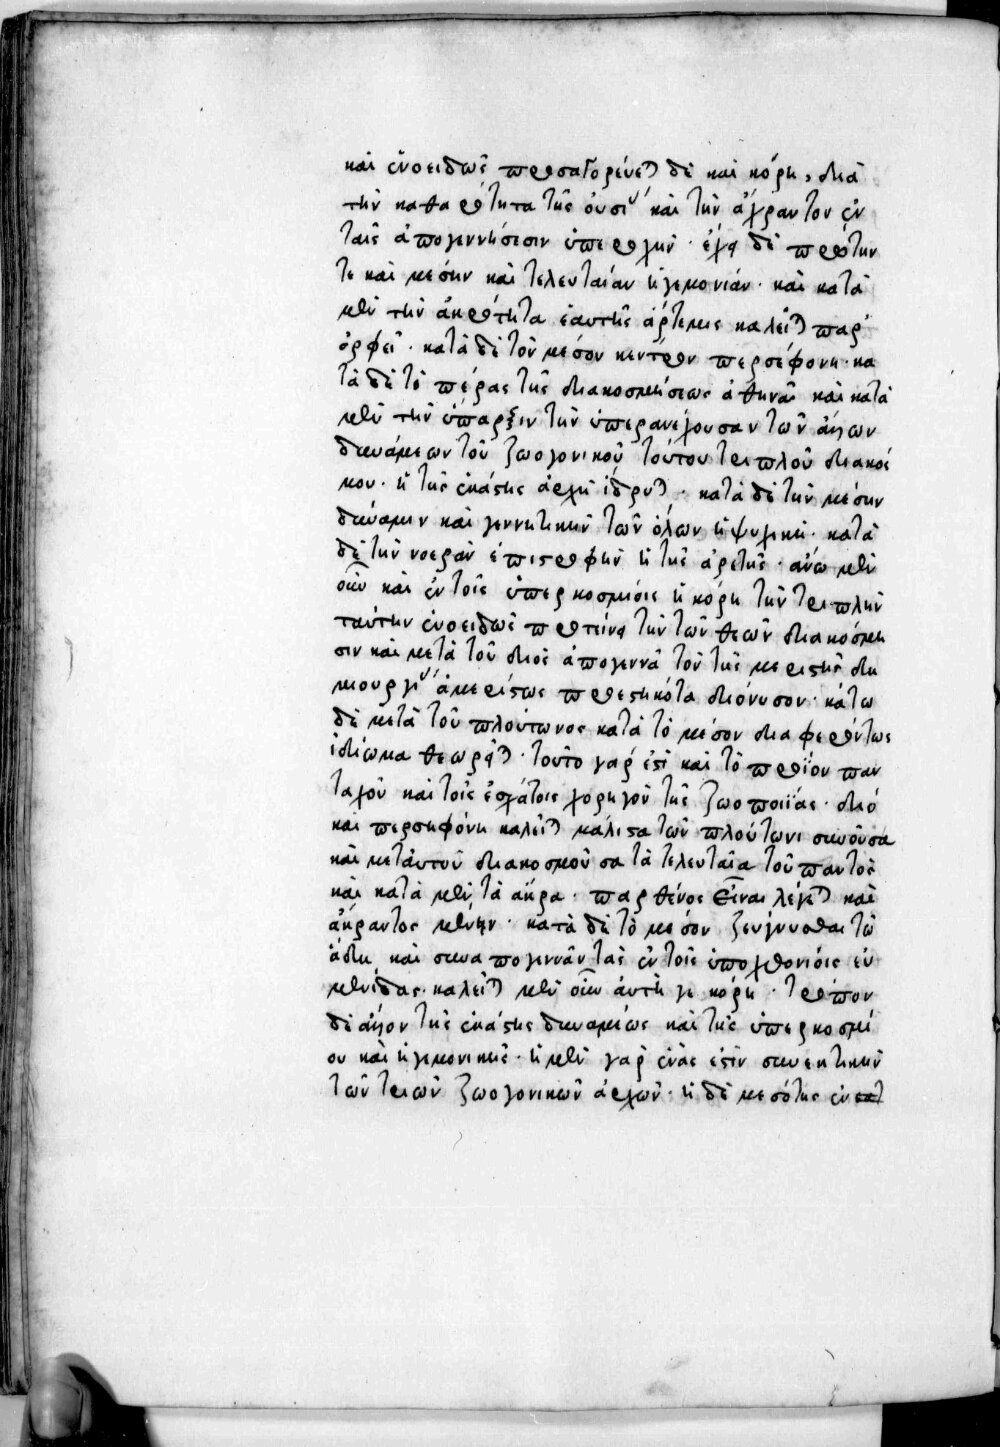 καὶ ἑνοειδῶς προσαγορεύεται δὲ καὶ κόρη, διὰ
τὴν καθαρότητα τῆς οὐσίας καὶ τὴν ἄχραντον ἐν
ταῖς ἀπογεννήσεσιν ὑπεροχήν· ἔχει δὲ πρώτην
τε καὶ μέσην καὶ τελευταίαν ἡγεμονίαν· καὶ κατὰ
μὲν τὴν ἀκρότητα ἑαυτῆς ἄρτεμις καλεῖται παρ'
ὀρφεῖ· κατὰ δὲ τὸν μέσον κέντρον περσεφόνη· κα
τὰ δὲ τὸ πέρας τῆς διακοσμήσεως ἀθηνᾶ καὶ κατὰ
μὲν τὴν ὕπαρξιν τὴν ὑπερανέχουσαν τῶν ἄλλων
δυνάμεων τοῦ ζωογονικοῦ τούτου τριπλοῦ διακόσ
μου· ἡ τῆς ἑκάτης ἀρχὴ ἵδρυται· κατὰ δὲ τὴν μέσην
δύναμιν καὶ γεννητικὴν τῶν ὅλων ἡ ψυχική· κατὰ
δὲ τὴν νοερὰν ἐπιστροφὴν ἡ τῆς ἀρετῆς· ἄνω μὲν
οὖν καὶ ἐν τοῖς ὑπερκοσμίοις ἡ κόρη τὴν τριπλῆν
ταύτην ἑνοειδῶς προτείνει τὴν τῶν θεῶν διακόσμη
σιν καὶ μετὰ τοῦ διὸς ἀπογεννᾶ τὸν τῆς μεριστῆς δη
μιουργίας ἀμερίστως προεστηκότα διόνυσον· κάτω
δὲ μετὰ τοῦ πλούτωνος κατὰ τὸ μέσον διαφερόντως
ἰδίωμα θεωρεῖται· τοῦτο γάρ ἐστι καὶ τὸ προϊὸν παν
ταχοῦ καὶ τοῖς ἐσχάτοις χορηγοῦν τῆς ζωοποιΐας· διὸ
καὶ περσηφόνη καλεῖται μάλιστα τῶν πλούτωνι συνοῦσα
καὶ μετ' αὐτοῦ διακοσμοῦσα τὰ τελευταῖα τοῦ παντὸς
καὶ κατὰ μὲν τὰ ἄκρα· παρθένος εἶναι λέγεται καὶ
ἄχραντος μένειν· κατὰ δὲ τὸ μέσον ζεύγνυσθαι τῷ
ἅδῃ καὶ συναπογεννᾶν τὰς ἐν τοῖς ὑποχθονίοις εὐ
μενίδας· καλεῖται μὲν οὖν αὐτή γε κόρη· τρόπον
δὲ ἄλλον τῆς ἑκάτης δυναμέως καὶ τῆς ὑπερκοσμί
ου καὶ ἡγεμονικῆς· ἡ μὲν γὰρ ἑνάς ἐστιν συνεκτικὴν
τῶν τριῶν ζωογονικῶν ἀρχῶν· ἡ δὲ μεσότης ἐν